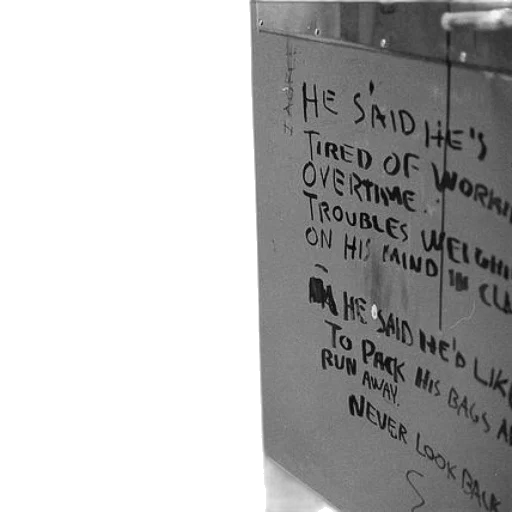 I AGREE
HE SAID HE'S
TIRED OF WORKI
OVERTIME.
TROUBLES WEIGHI
ON HIS MIND IN CLA
HE SAID HE'D LIKE
TO PACK HIS BAGS A
RUN AWAY.
NEVER LOOK BACK